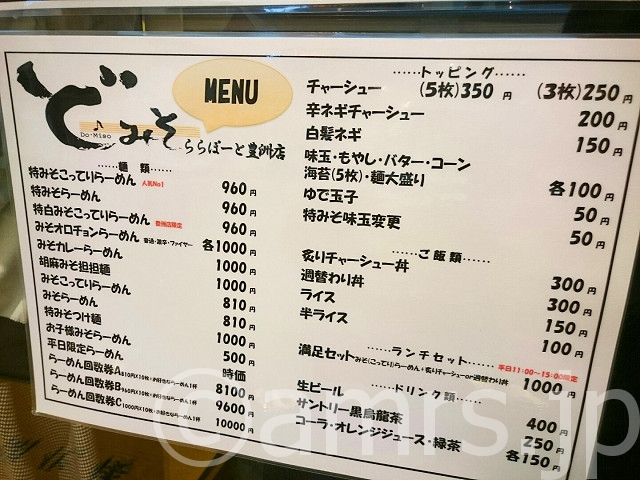 ど・みそ
Do・Miso
ららぽーと豊洲店
MENU
……麺 類……
特みそこってりらーめん 人気No1 960円
特みそらーめん 960円
特白みそこってりらーめん 豊洲店限定 960円
みそオロチョンらーめん 普通・激辛・ファイヤー 各1000円
みそカレーらーめん 1000円
胡麻みそ担担麺 1000円
みそこってりらーめん 810円
みそらーめん 810円
特みそつけ麺 1000円
お子様みそらーめん 500円
平日限定らーめん 時価
らーめん回数券A 810円X10枚+お好きならーめん1杯 8100円
らーめん回数券B 960円X10枚+お好きならーめん1杯 9600円
らーめん回数券C 1000円X10枚+お好きならーめん1杯 10000円
……トッピング……
チャーシュー (5枚)350円 (3枚)250円
辛ネギチャーシュー 200円
白髪ネギ 150円
味玉・もやし・バター・コーン
海苔(5枚)・麺大盛り 各100円
ゆで玉子 50円
特みそ味玉変更 50円
……ご飯類……
炙りチャーシュー丼 300円
週替わり丼 300円
ライス 150円
半ライス 100円
……ランチセット…… 平日11:00~15:00限定
満足セット みそ(こってり)らーめん+炙りチャーシューor週替わり丼 1000円
……ドリンク類……
生ビール 400円
サントリー黒烏龍茶 250円
コーラ・オレンジジュース・緑茶 各150円
©amrs.jp